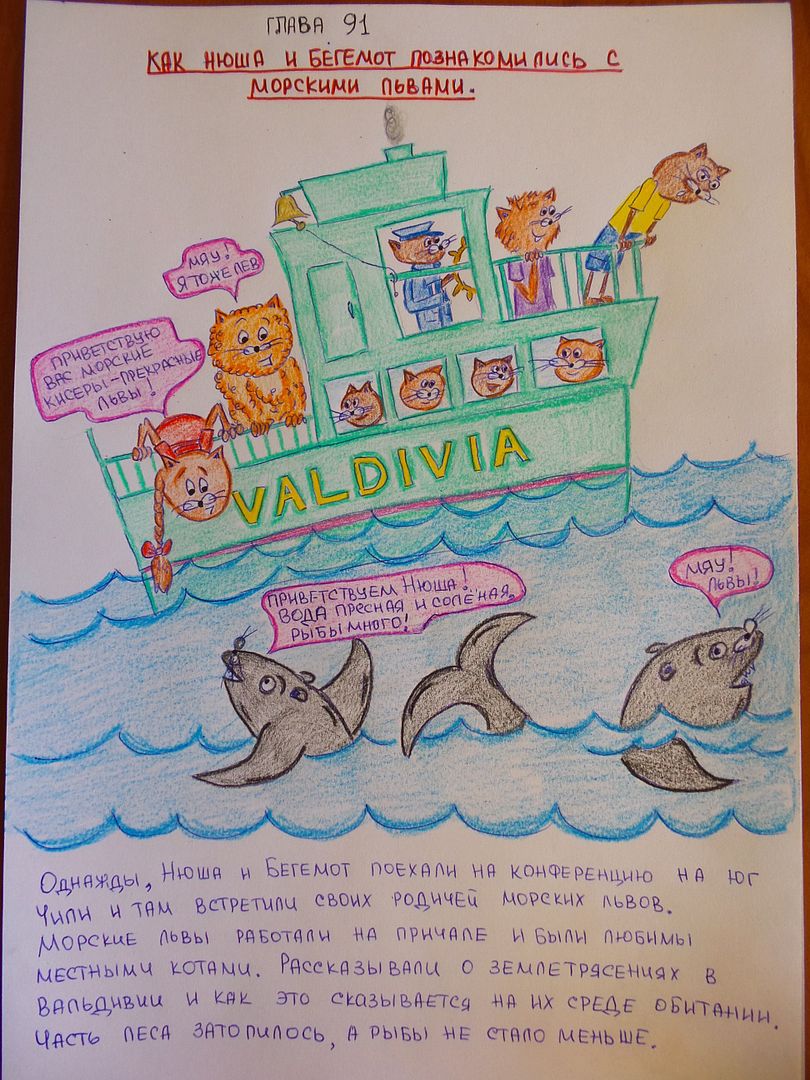 ГЛАВА 91
КАК НЮША И БЕГЕМОТ ПОЗНАКОМИЛИСЬ С
МОРСКИМИ ЛЬВАМИ.
МЯУ!
Я ТОЖЕ ЛЕВ
ПРИВЕТСТВУЮ
ВАС МОРСКИЕ
КИСЕРЫ-ПРЕКРАСНЫЕ
ЛЬВЫ!
VALDIVIA
ПРИВЕТСТВУЕМ НЮША!
ВОДА ПРЕСНАЯ И СОЛЁНАЯ.
РЫБЫ МНОГО!
МЯУ!
ЛЬВЫ!
ОДНАЖДЫ, НЮША И БЕГЕМОТ ПОЕХАЛИ НА КОНФЕРЕНЦИЮ НА ЮГ
ЧИЛИ И ТАМ ВСТРЕТИЛИ СВОИХ РОДИЧЕЙ МОРСКИХ ЛЬВОВ.
МОРСКИЕ ЛЬВЫ РАБОТАЛИ НА ПРИЧАЛЕ И БЫЛИ ЛЮБИМЫ
МЕСТНЫМИ КОТАМИ. РАССКАЗЫВАЛИ О ЗЕМЛЕТРЯСЕНИЯХ В
ВАЛЬДИВИИ И КАК ЭТО СКАЗЫВАЕТСЯ НА ИХ СРЕДЕ ОБИТАНИИ.
ЧАСТЬ ЛЕСА ЗАТОПИЛОСЬ, А РЫБЫ НЕ СТАЛО МЕНЬШЕ.